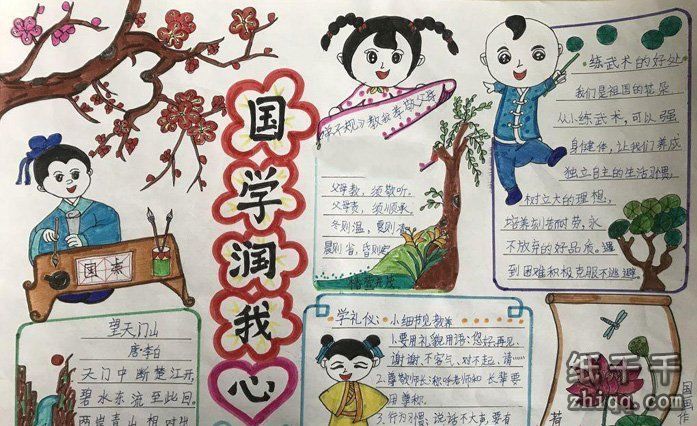 国
学
润
我
心
国
望天门山
唐李白
天门中断楚江开，
碧水东流至此回
两岸青山相对出
父母教，须敬听，
父母责，须顺承，
冬则温，夏则
晨则省，昏则定
学礼仪：小细节见教养
1.要用礼貌用语：您好，再见，
谢谢，不客气，对不起，请……
2.尊敬师长：称呼老师和长辈要
用尊称。
3.行为习惯：说话不大声，要有
练武术的好处
我们是祖国的花朵
从小练武术，可以强
身健体，让我们养成
独立自主的生活习惯，
树立大的理想，
培养刻苦耐劳，永
不放弃的好品质。遇
到困难积极克服不逃避。
荷
国画作
纸千千
zhiqq.com